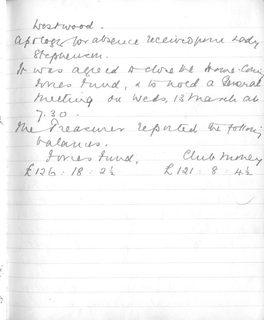 Westwood.
Apology for absence received from Lady
Stephenson.
It was agreed to close the Home-Com
Jones Fund, & to hold a General
Meeting on Weds, 13 March at
7.30.
The Treasurer reported the following
balances.
Jones Fund. Club Money
£126 : 18 : 2½ £121 : 8 : 4½